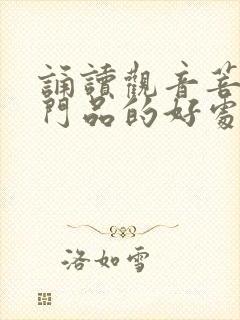 誦讀觀音菩
門品的好處
洛如雪